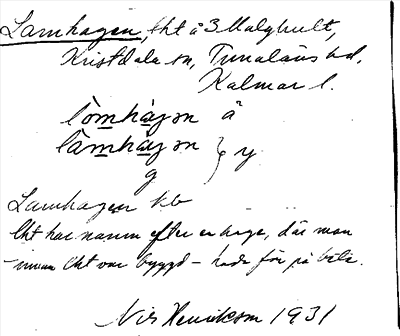 Lamhagen, lht å 3 Malghult,
Kristdala sn, Tunaläns hd.
Kalmar l.
lòmhàgən ä
làmhàgən } y
g
Lamhagen kb
Lht har namn efter en hage, där man
innan lht var byggd – hade får på bete.
Nils Henrikson 1931